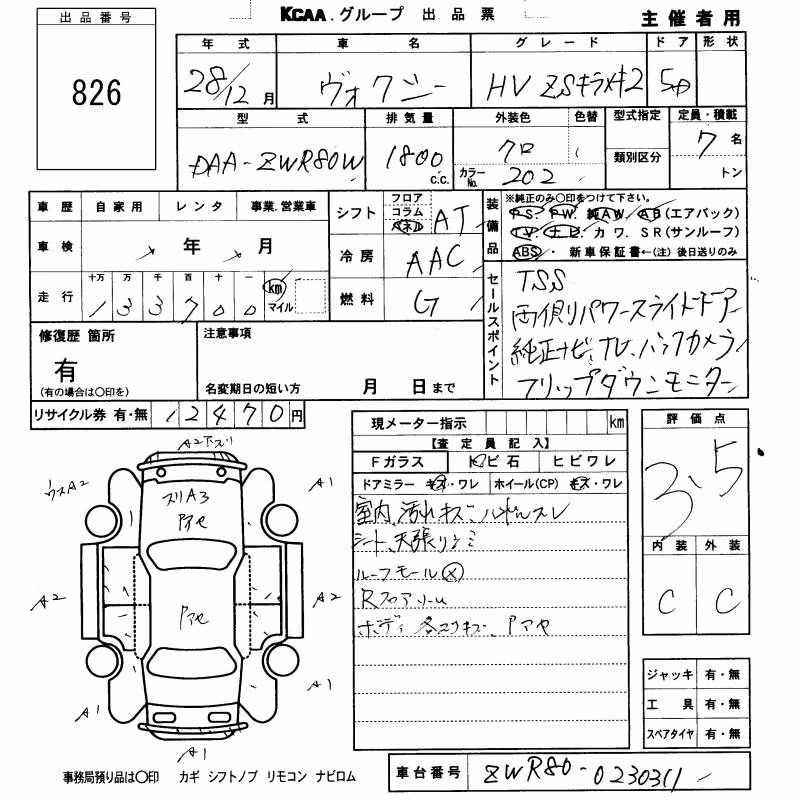 出品番号
826
KCAA.グループ 出品票
主催者用
年式 車名 グレード ドア 形状
28/12月 ヴォクシー HV ZSキラメキ2 5D
型式 排気量 外装色 色替 型式指定 定員・積載
DAA-ZWR80W 1800 c.c. クロ 類別区分 7名
カラーNo. 202 トン
車歴 自家用 レンタ 事業.営業車
シフト フロア コラム パネル AT
装備品 ※純正のみ○印をつけて下さい。
PS. PW. 純AW. AB(エアバック)
TV. ナビ カワ. SR(サンルーフ)
ABS・ 新車保証書←(注)後日送りのみ
車検 年 月
冷房 AAC
走行 十万 万 千 百 十 一 km マイル
133700
燃料 G
セールスポイント
TSS
両側パワースライドドア
純正ナビ、TV、バックカメラ
フリップダウンモニター
修復歴 箇所
有
(有の場合は○印を)
注意事項
名変期日の短い方 月 日まで
リサイクル券 有・無 12470円
現メーター指示 km
【査定員記入】
Fガラス トビ石 ヒビワレ
ドアミラー キズ・ワレ ホイール(CP) キズ・ワレ
室内、汚れキズ、ハンドルスレ
シート、天張リシミ
ルーフモール×
Rフロアリペ
ボディ 各スリキズ、Pアセ
評価点
3.5
内装 外装
C C
A2下スリ
ウスA2
スリA3
Pアセ
A1
A2
A2
Pアセ
A1
A1
A1
ジャッキ 有・無
工具 有・無
スペアタイヤ 有・無
事務局預り品は○印 カギ シフトノブ リモコン ナビロム
車台番号 ZWR80-0230311